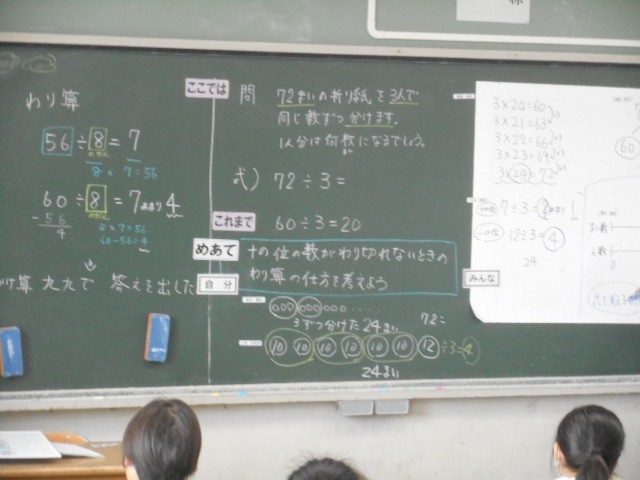 わり算
56÷8=7
8×7=56
60÷8=7あまり4
-56
4
8×7=56
60-56=4
わり算 九九で 答えを出した
ここでは
問 72まいの折り紙を3人で
同じ数ずつ分けます。
1人分は何枚になるでしょう。
式) 72÷3=
これまで
60÷3=20
めあて
十の位の数がわり切れないときの
わり算の仕方を考えよう
自分
みんな
3ずつ分けた 24まい
72=
10 10 10 10 10 10 12÷3=4
24まい
3×20=60
3×21=63
3×22=66
3×23=69
3×24=72
十の位 7÷3=2 1
一の位 12÷3=4
24
60
人数
0